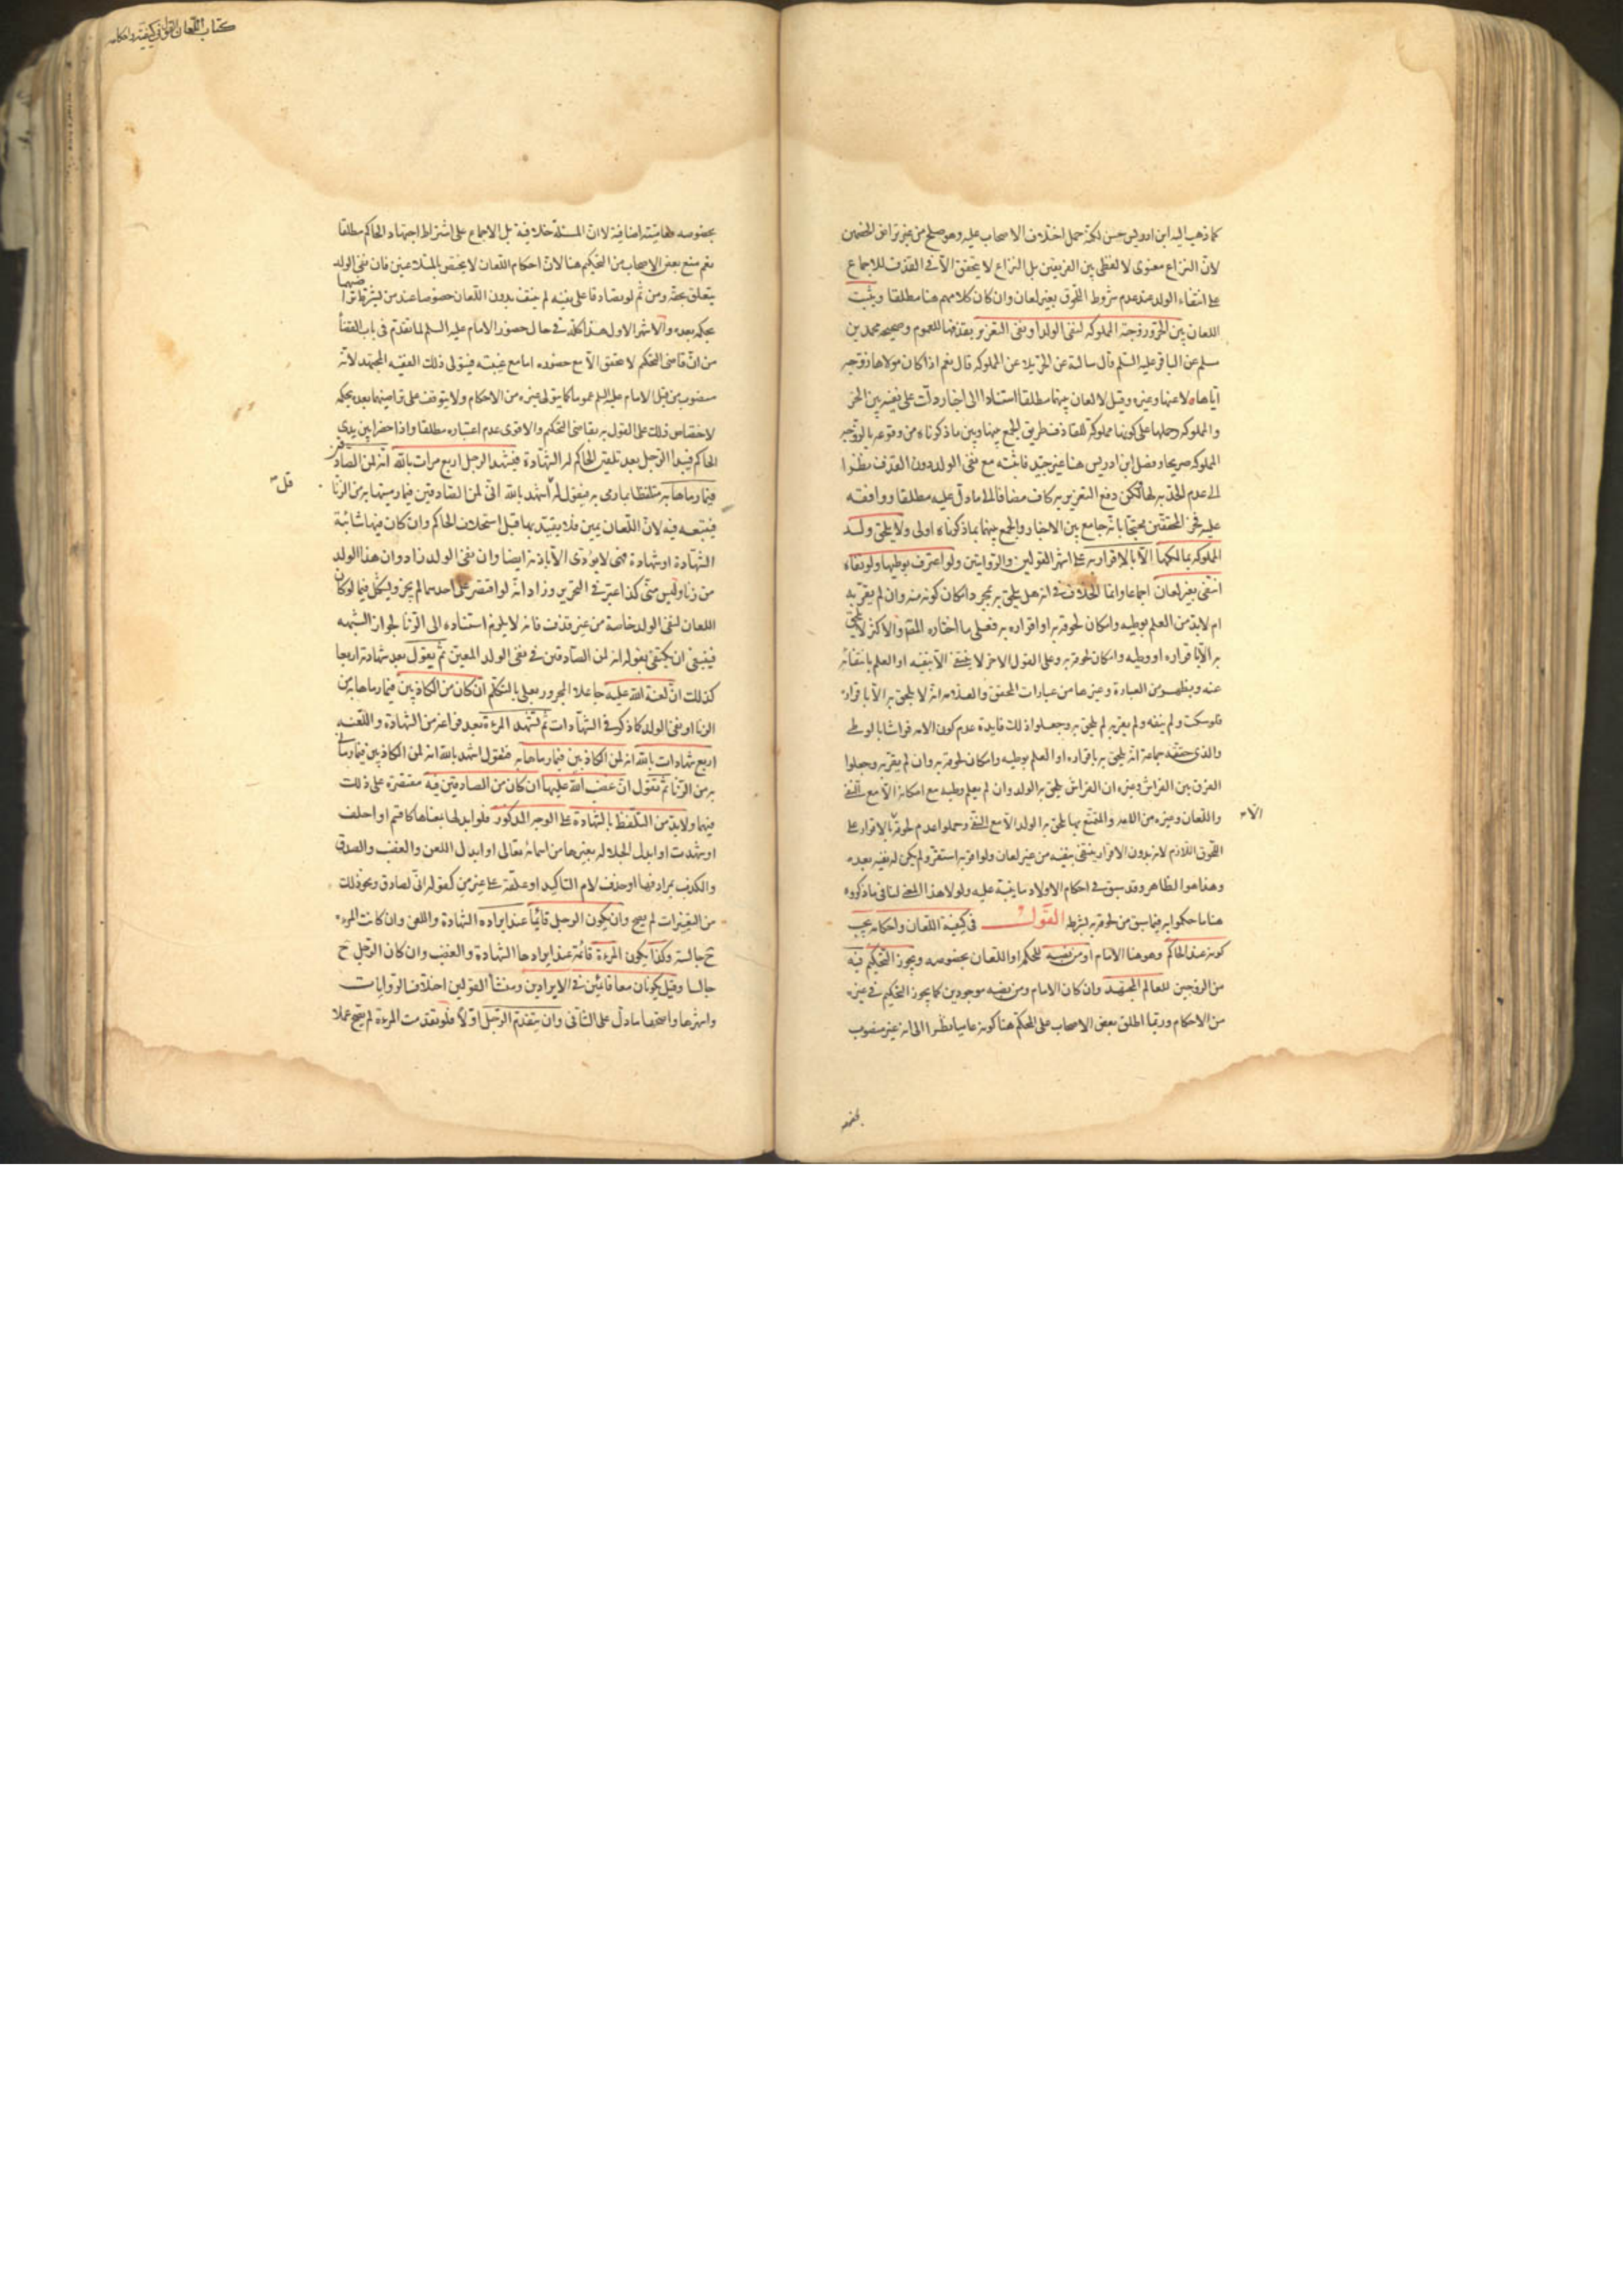 كما ذهب اليه ابن ادريس حسن لكنه حمل اختلاف الاصحاب عليه وهو صلح من غير تراضى الخصمين
لان النزاع معنوى لا لفظى بين الفريقين بل النزاع لا يتحقق الا فى القذف للاجماع
على انتفاء الولد عند عدم شروط اللحوق بغير لعان وان كان كلامهم هنا مطلقا ويثبت
اللعان بين الحر وزوجته المملوكة لنفى الولد او نفى التعزير بقذفها للعموم وصحيحة محمد بن
مسلم عن الباقر عليه السلم قال سالته عن الحر يلاعن المملوكة قال نعم اذا كان مولاها زوجه
اياها لاعنها وغيره وقيل لا لعان بينهما مطلقا استنادا الى اخبار دلت على نفيه بين الحر
والمملوكة وحملها على كونها مملوكة للقاذف طريق الجمع بينها وبين ما ذكرناه من وقوعه بالزوجة
المملوكة صريحا وفصل ابن ادريس هنا غير جيد فاثبته مع نفى الولد دون القذف نظرا
الى عدم الحد به لها لكن دفع التعزير به كاف مضافا الى ما دل عليه مطلقا ووافقه
عليه فخر المحققين محتجا بانه جامع بين الاخبار والجمع بينهما بما ذكرناه اولى ولا يلحق ولد
المملوكة بمالكها الا بالاقرار به على اشهر القولين والروايتين ولو اعترف بوطيها ولو نفاه
انتفى بغير لعان اجماعا وانما الخلاف فى انه هل يلحق به بمجرد امكان كونه منه وان لم يقر به
ام لابد من العلم بوطيه وامكان لحوقه به او اقراره به فعلى ما اختاره المص والاكثر لا يلحق
به الا باقراره او وطيه وامكان لحوقه به وعلى القول الاخر لا ينتفى الا بنفيه او العلم بانتفائه
عنه ويظهر من العبارة وغيرها من عبارات المحقق والعلامة انه لا يلحق به الا باقراره
فلو سكت ولم ينفه ولم يقر به لم يلحق به وجعلوا ذلك فايدة عدم كون الامة فراشا بالوطى
والذى حققه جماعة انه يلحق به باقراره او العلم بوطيه وامكان لحوقه به وان لم يقر به وجعلوا
الفرق بين الفراش وغيره ان الفراش يلحق به الولد وان لم يعلم وطيه مع امكانه الا مع النفى
واللعان وغيره من الامة والمتمتع بها يلحق به الولد الا مع النفى وحملوا عدم لحوقه بالاقرار على
الا
اللحوق اللازم لانه بدون الاقرار ينتفى بنفيه من غير لعان ولو اقر به استقر ولم يكن له نفيه بعده
وهذا هو الظاهر وقد سبق فى احكام الاولاد ما ينبه عليه ولولا هذا المعنى لنافى ما ذكروه
هنا ما حكموا به فيما سبق من لحوقه به بشرطه القول فى كيفية اللعان واحكامه يجب
كونه عند الحاكم وهو هنا الامام او من نصبه للحكم او اللعان بخصوصه ويجوز التحكيم فيه
من الزوجين للعالم المجتهد وان كان الامام ومن نصبه موجودين كما يجوز التحكيم فى غيره
من الاحكام وربما اطلق بعض الاصحاب على المحكم هنا كونه عاميا نظرا الى انه غير منصوب
بخصوصه
كتاب اللعان القول فى كيفيته واحكامه
بخصوصه فعاميته اضافية لا ان المسئلة خلافية بل الاجماع على اشتراط اجتهاد الحاكم مطلقا
نعم منع بعض الاصحاب من التحكيم هنا لان احكام اللعان لا يختص بالمتلاعنين فان نفى الولد
يتعلق بحقه ومن ثم لو تصادقا على نفيه لم ينتف بدون اللعان خصوصا عند من يشترط تراضيهما
بحكمه بعده والاشهر الاول هذا كله فى حال حضور الامام عليه السلم لما تقدم فى باب القضا
من ان قاضى التحكيم لا يتحقق الا مع حضوره اما مع غيبته فيتولى ذلك الفقيه المجتهد لانه
منصوب من قبل الامام عليه السلم عموما كما يتولى غيره من الاحكام ولا يتوقف على تراضيهما بعده بحكمه
لاختصاص ذلك على القول به بقاضى التحكيم والاقوى عدم اعتباره مطلقا واذا حضرا بين يدى
الحاكم فيبدا الرجل بعد تلقين الحاكم له الشهادة فيشهد الرجل اربع مرات بالله انه لمن الصادقين
فيما رماها به متلفظا بما رمى به فيقول له اشهد بالله انى لمن الصادقين فيما رميتها به من الزنا
قل
فيتبعه فيه لان اللعان يمين فلا يعتد بها قبل استحلاف الحاكم وان كان فيها شائبة
الشهادة او شهادة فهى لا يؤدى الا باذنه ايضا وان نفى الولد زاد وان هذا الولد
من زنا وليس منى كذا عبر فى التحرير وزاد انه لو اقتصر على احدهما لم يجز ويشكل فيما لو كان
اللعان لنفى الولد خاصة من غير قذف فانه لا يلزم استناده الى الزنا لجواز الشبهة
فينبغى ان يكتفى بقوله انه لمن الصادقين فى نفى الولد المعين ثم يقول بعد شهادته اربعا
كذلك ان لعنة الله عليه جاعلا المجرور بعلى يا المتكلم ان كان من الكاذبين فيما رماها به من
الزنا او نفى الولد كما ذكر فى الشهادات ثم تشهد المرءة بعد فراغه من الشهادة واللعنة
اربع شهادات بالله انه لمن الكاذبين فيما رماها به فتقول اشهد بالله انه لمن الكاذبين فيما رمانى
به من الزنا ثم تقول ان غضب الله عليها ان كان من الصادقين فيه مقتصرة على ذلك
فيهما ولابد من التلفظ بالشهادة على الوجه المذكور فلو ابدلها بمعناها كاقسم او احلف
او شهدت او ابدل الجلالة بغيرها من اسمائه تعالى او ابدل اللعن والغضب والصدق
والكذب بمرادفها او حذف لام التاكيد او علقه على غير من كقوله انى لصادق ونحو ذلك
من التغييرات لم يصح وان يكون الرجل قائما عند ايراده الشهادة واللعن وان كانت المرءة
ح جالسة وكذا يكون المرءة قائمة عند ايرادها الشهادة والغضب وان كان الرجل ح
جالسا وقيل يكونان معا قائمين فى الايرادين ومنشأ القولين اختلاف الروايات
واشهرها واصحها ما دل على الثانى وان يتقدم الرجل اولا فلو تقدمت المرءة لم يصح عملا